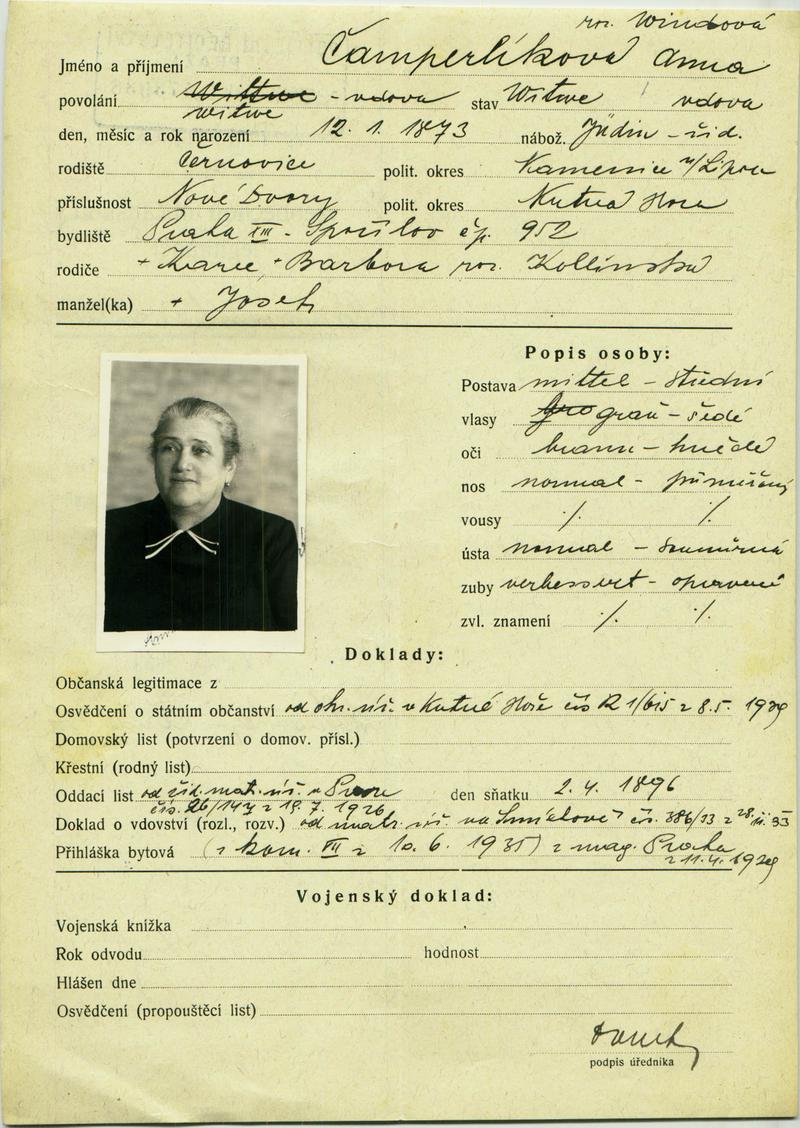 roz. Windová
Jméno a příjmení Čamperlíková Anna
povolání Wittwe - vdova stav Witwe vdova
witwe
den, měsíc a rok narození 12. 1. 1873 nábož. Jüdin - žid.
rodiště Černovice polit. okres Kamenice n/Lipou
příslušnost Nové Dvory polit. okres Kutná Hora
bydliště Praha XIII - Spořilov čp. 952
rodiče + + Barbora roz. Kollinská
manžel(ka) + Josef
Popis osoby:
Postava mittel - střední
vlasy grau - šedé
oči braun - hnědé
nos normal -
vousy ./. ./.
ústa normal - souměrná
zuby verbessert - opravené
zvl. znamení ./. ./.
Doklady:
Občanská legitimace z
Osvědčení o státním občanství od okr. úř. v Kutné Hoře čís R 1/615 z 8.5. 1939
Domovský list (potvrzení o domov. přísl.)
Křestní (rodný list)
Oddací list od žid. mat. úř. v den sňatku 2. 4. 1896
čís. 26/147 z 19. 7. 1926
Doklad o vdovství (rozl., rozv.) od matr. úř. na čís. 386/33 z 28. 33
Přihláška bytová (z kom. z 10. 6. 1935) z mag. Praha
z 11.4. 1939
Vojenský doklad:
Vojenská knížka
Rok odvodu hodnost
Hlášen dne
Osvědčení (propouštěcí list)
podpis úředníka